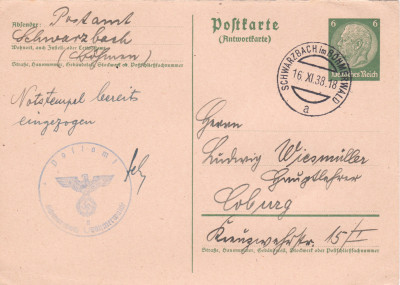 Absender: Postamt
Schwarzbach
(Böhmen)
Wohnort, auch Zustell- oder Leitpostamt
Straße, Hausnummer, Gebäudeteil, Stockwerk od. Postschließfachnummer
Notstempel bereits
eingezogen
Postamt
Postkarte
(Antwortkarte)
6
6
Deutsches Reich
SCHWARZBACH im BÖHMERWALD
16.XI.38.18
a
Herrn
Ludwig Wiesmüller
Hauptlehrer
Coburg
Kreuzwehrstr. 15/I
Straße, Hausnummer, Gebäudeteil, Stockwerk oder Postschließfachnummer